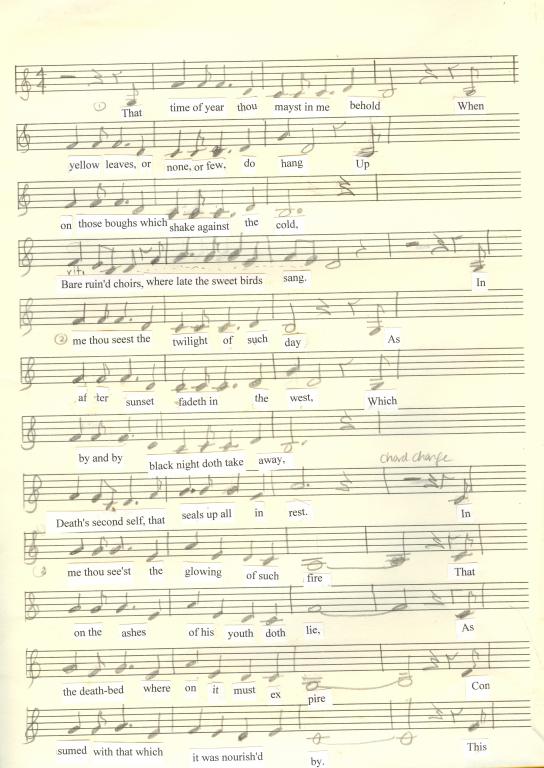 ① That time of year thou mayst in me behold When
yellow leaves, or none, or few, do hang Up
on those boughs which shake against the cold,
rit.
Bare ruin'd choirs, where late the sweet birds sang. In
② me thou seest the twilight of such day As
af ter sunset fadeth in the west, Which
by and by black night doth take away,
chord change
Death's second self, that seals up all in rest. In
③ me thou see'st the glowing of such fire That
on the ashes of his youth doth lie, As
the death-bed where on it must ex pire Con
sumed with that which it was nourish'd by. This